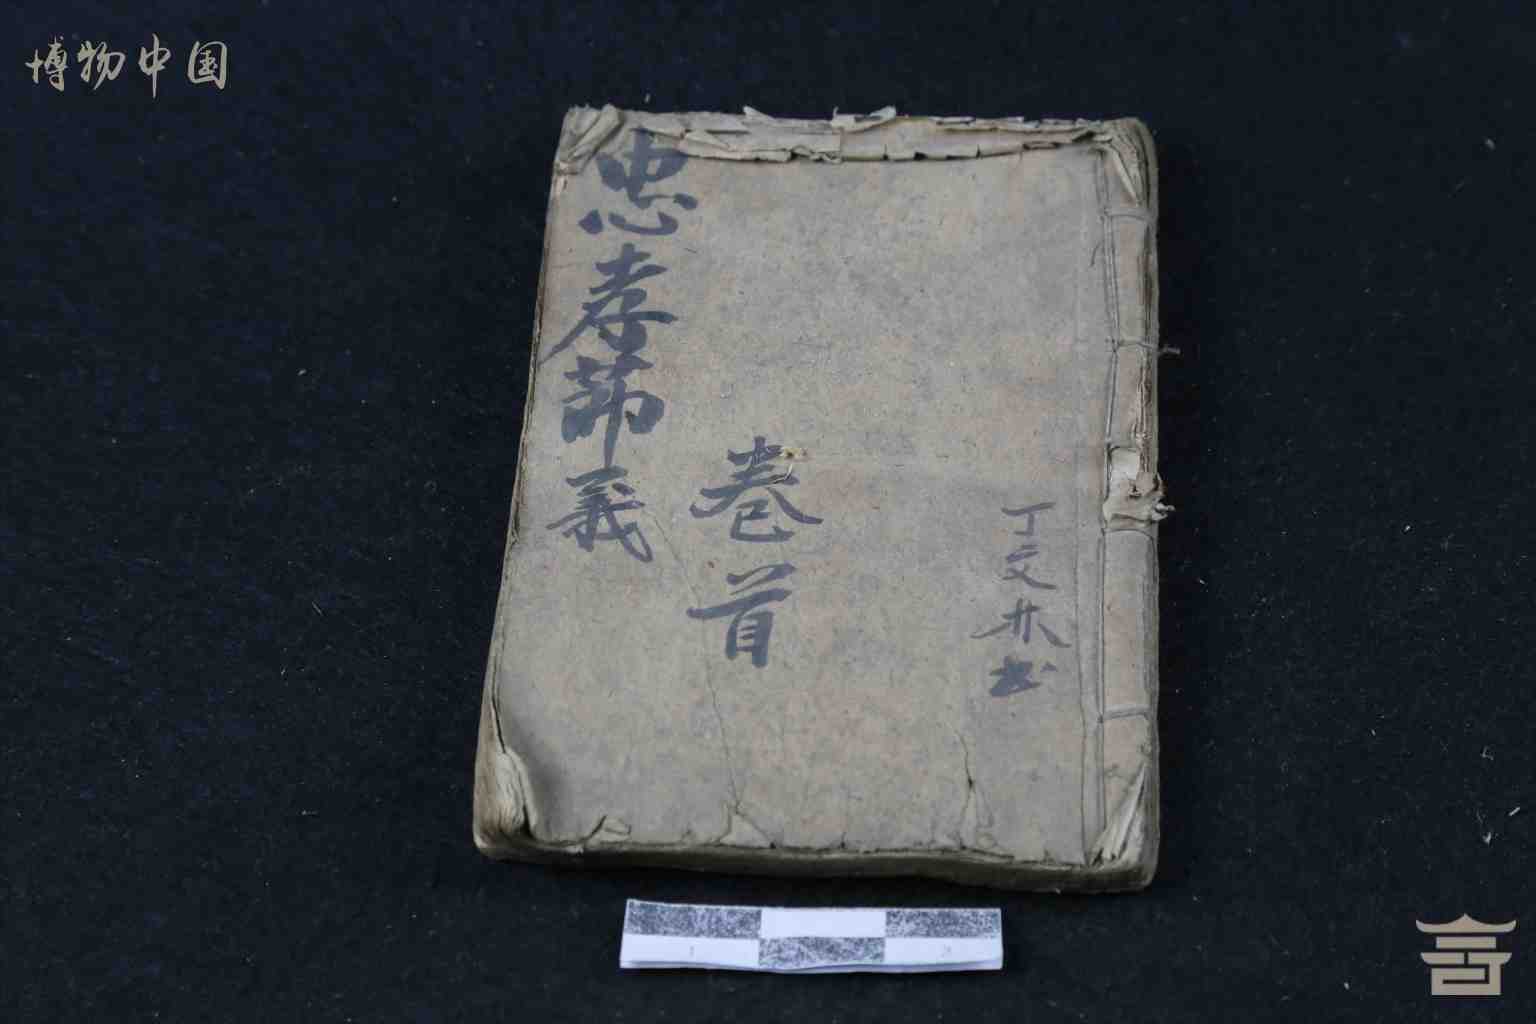 博物中国
忠孝節義
卷首
丁文